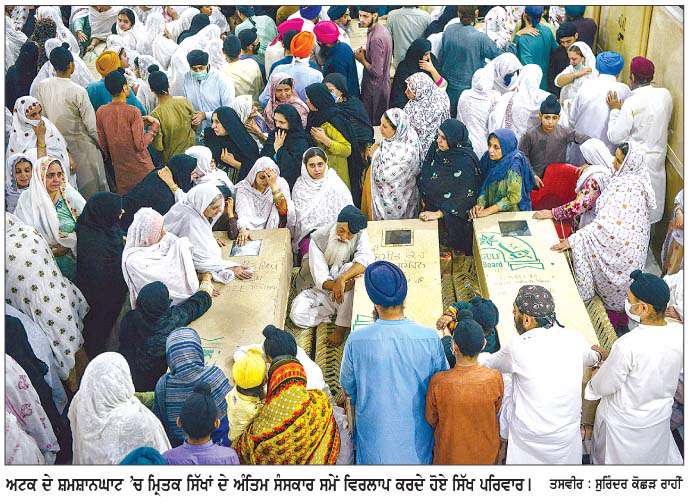 GULF
Board
ਅਟਕ ਦੇ ਸ਼ਮਸ਼ਾਨਘਾਟ 'ਚ ਮ੍ਰਿਤਕ ਸਿੱਖਾਂ ਦੇ ਅੰਤਿਮ ਸੰਸਕਾਰ ਸਮੇਂ ਵਿਰਲਾਪ ਕਰਦੇ ਹੋਏ ਸਿੱਖ ਪਰਿਵਾਰ। ਤਸਵੀਰ : ਸੁਰਿੰਦਰ ਕੋਛੜ ਰਾਹੀਂ